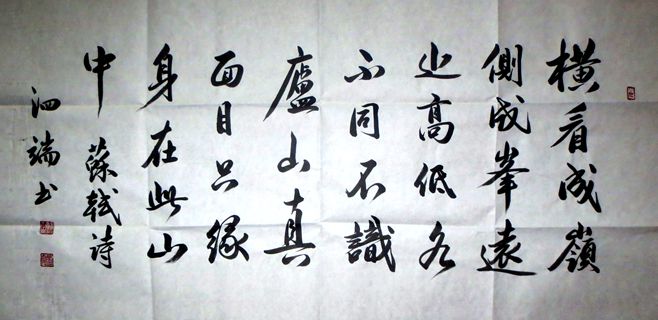 橫看成嶺
側成峯遠
近高低各
不同不識
廬山真
面目只緣
身在此山
中 蘇軾诗
泗端书